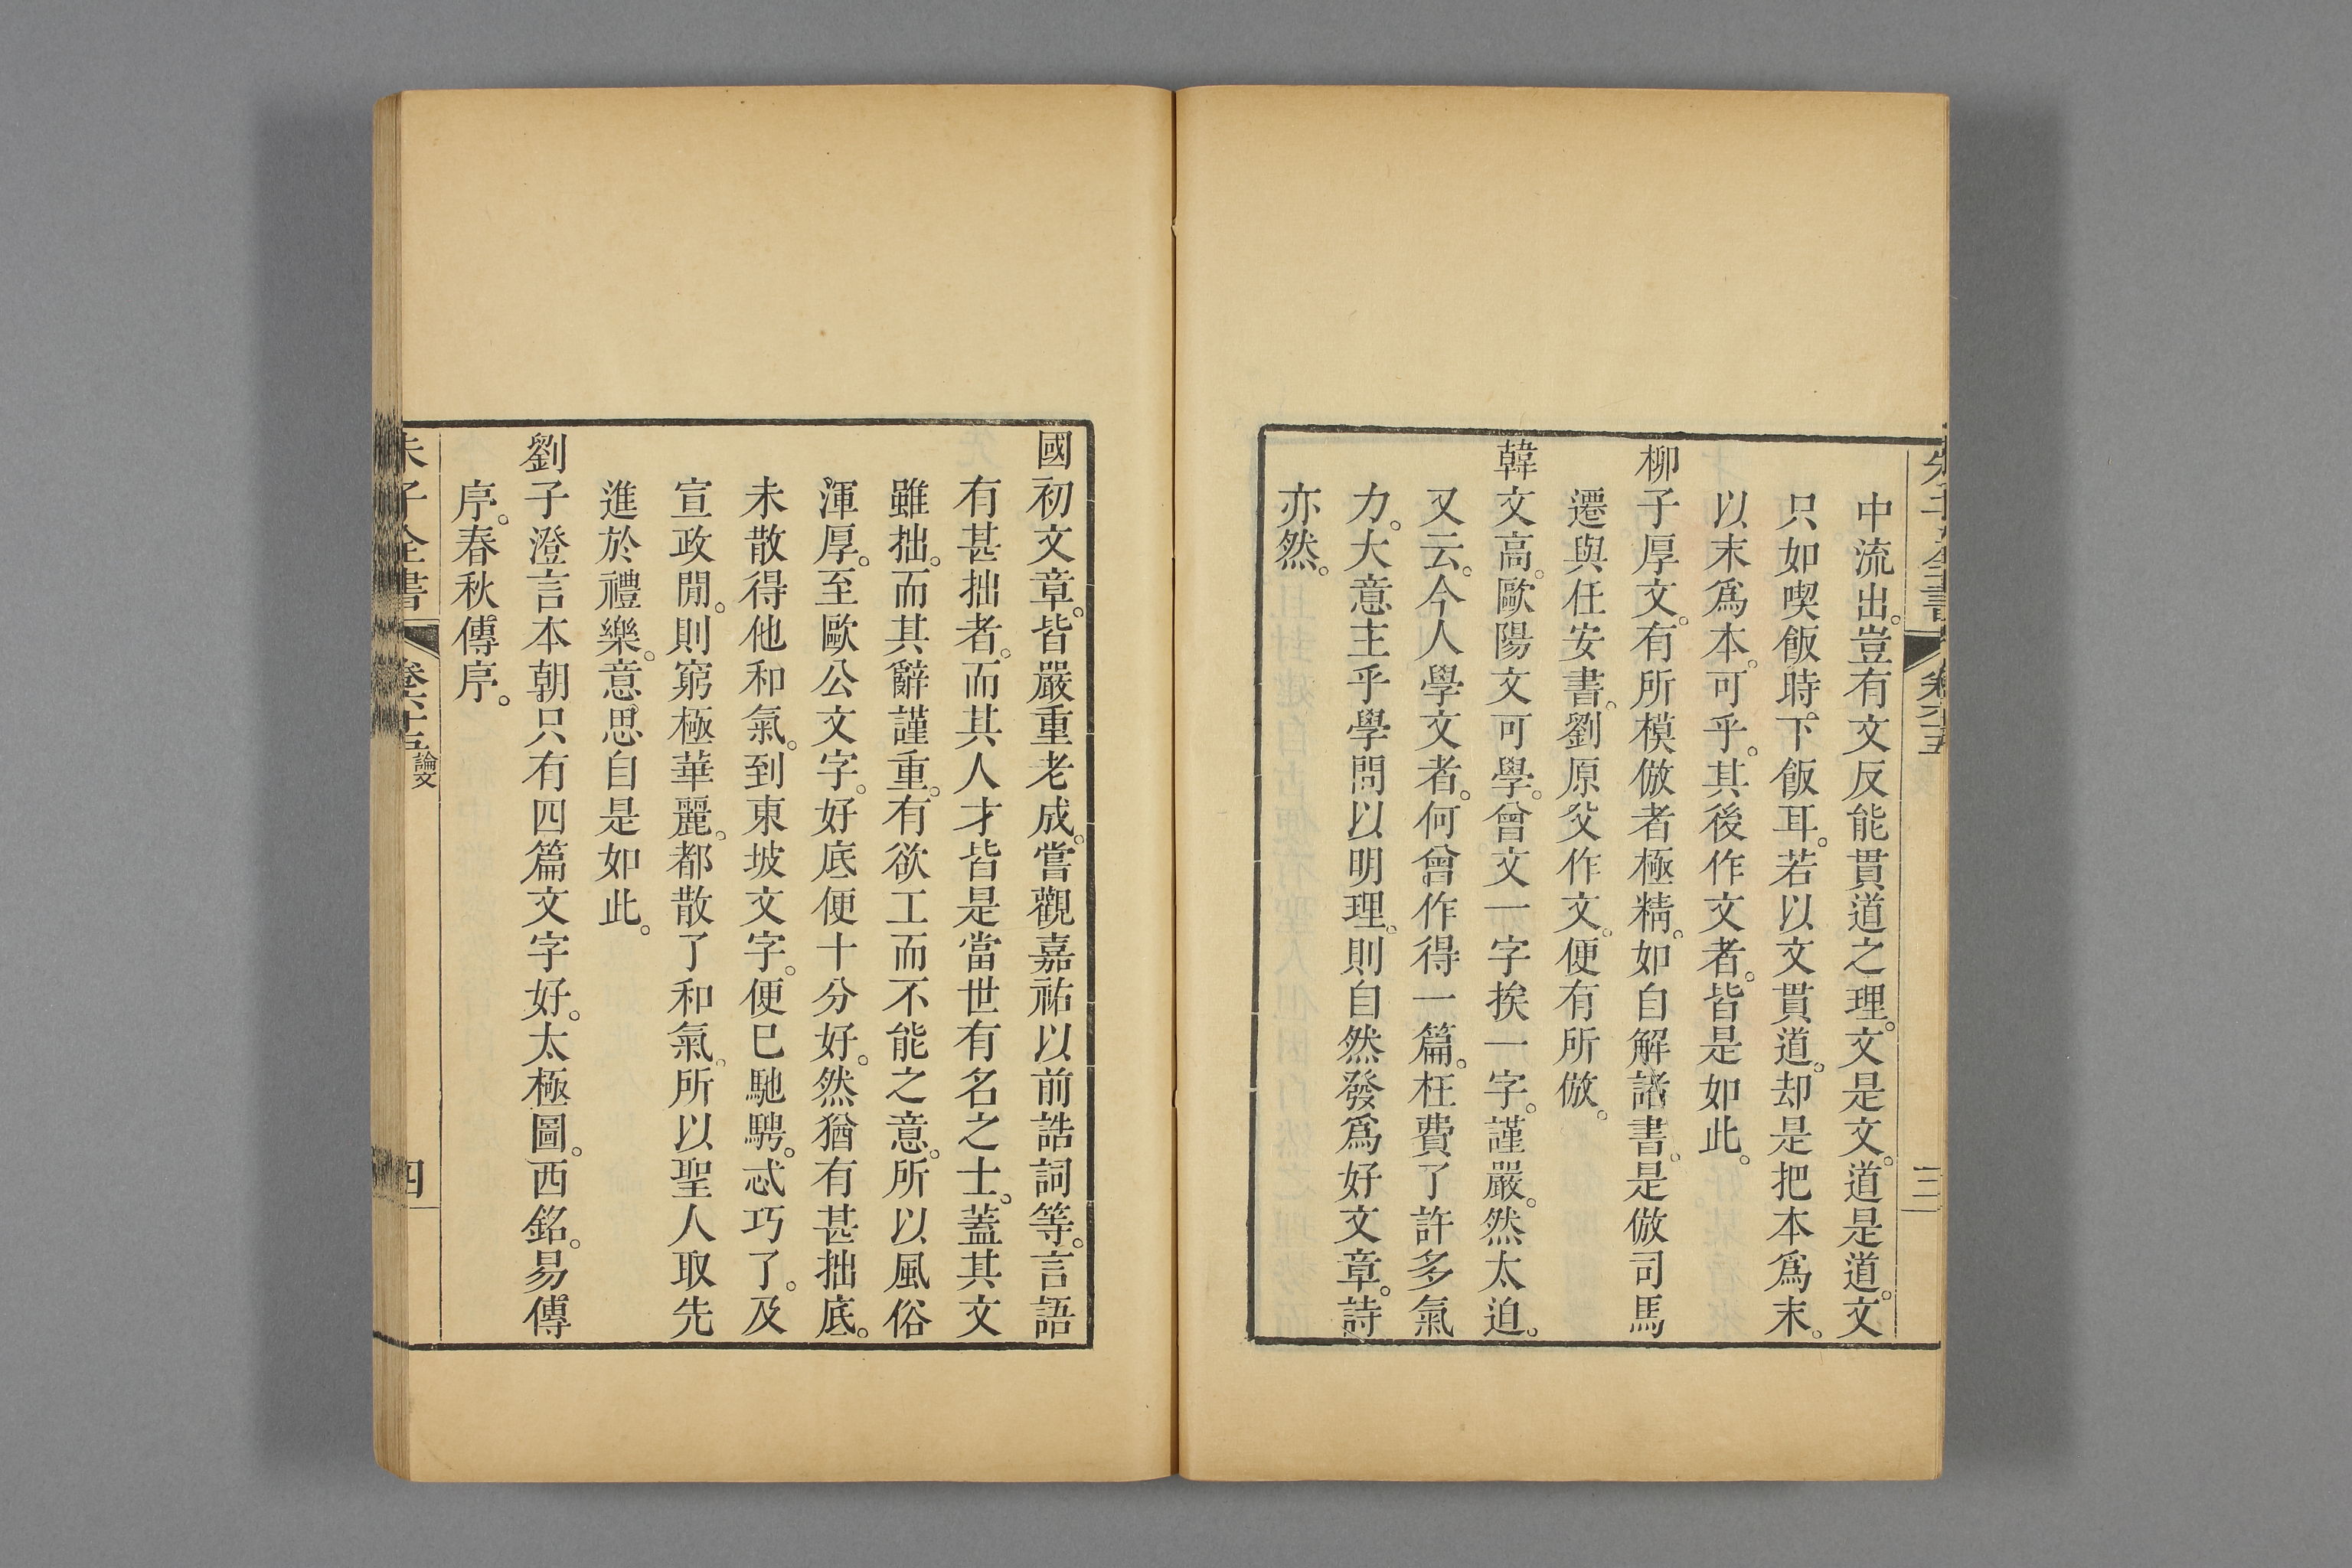 朱子全書
卷六十五
三
中流出。豈有文反能貫道之理。文是文。道是道。文
只如喫飯時。下飯耳。若以文貫道。却是把本爲末。
以末爲本。可乎。其後作文者。皆是如此。
柳子厚文。有所模倣者極精。如自解諸書。是倣司馬
遷與任安書。劉原父作文。便有所倣。
韓文高。歐陽文可學。曾文一字挨一字。謹嚴。然太迫。
又云。今人學文者。何曾作得一篇。枉費了許多氣
力。大意主乎學問以明理。則自然發爲好文章。詩
亦然。
國初文章。皆嚴重老成。嘗觀嘉祐以前誥詞等。言語
有甚拙者。而其人才皆是當世有名之士。蓋其文
雖拙。而其辭謹重。有欲工而不能之意。所以風俗
渾厚。至歐公文字。好底便十分好。然猶有甚拙底。
未散得他和氣。到東坡文字。便已馳騁。忒巧了。及
宣政閒。則窮極華麗。都散了和氣。所以聖人取先
進於禮樂。意思自是如此。
劉子澄言本朝只有四篇文字好。太極圖。西銘。易傳
序。春秋傳序。
朱子全書
卷六十五
論文
四